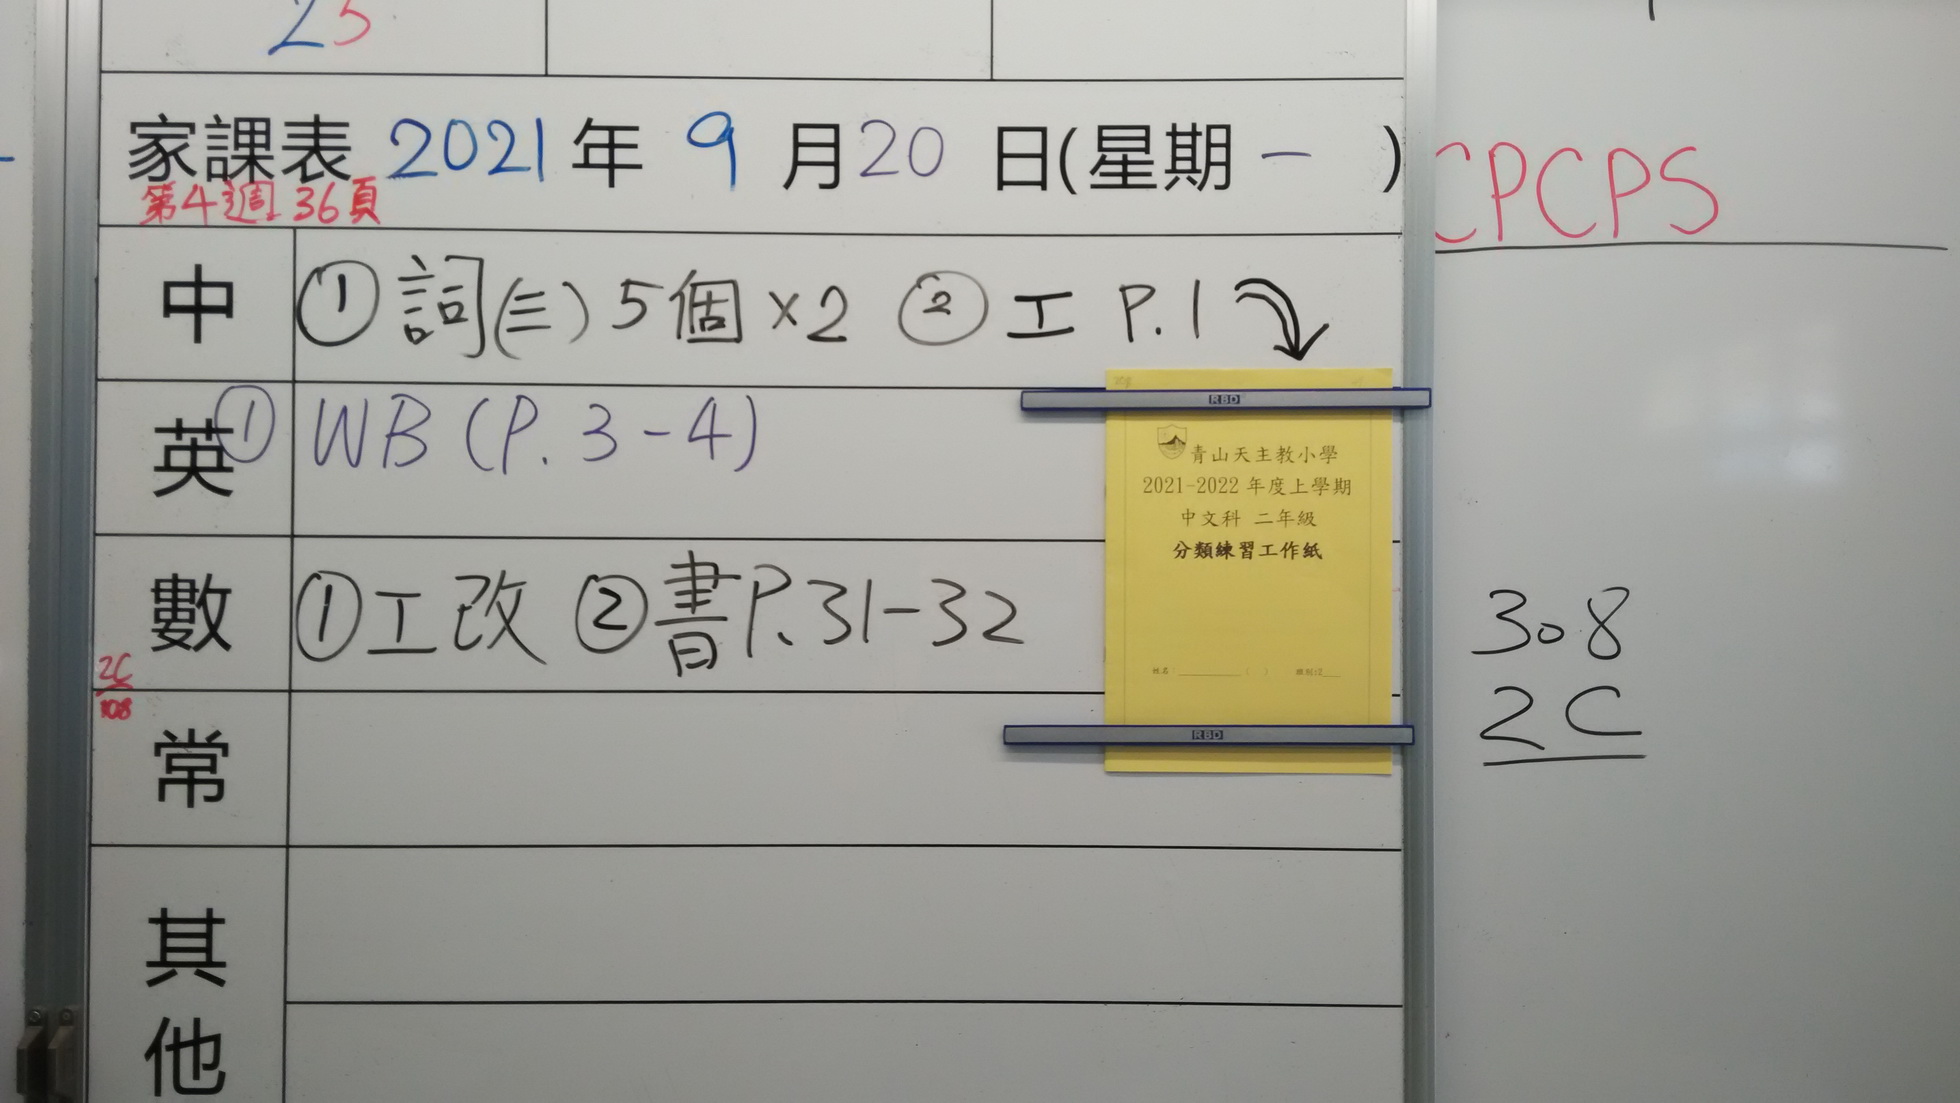 25
家課表 2021年 9月20日(星期一)
第4週 36頁
中 ① 詞(三)5個×2 ② 工 P.1
英 ① WB (P. 3-4)
數 ①工改 ②書P.31-32
2C
308
常
其他
RBD
青山天主教小學
2021-2022 年度上學期
中文科 二年級
分類練習工作紙
姓名 ( ) 班別:2
RBD
CPCPS
308
2C